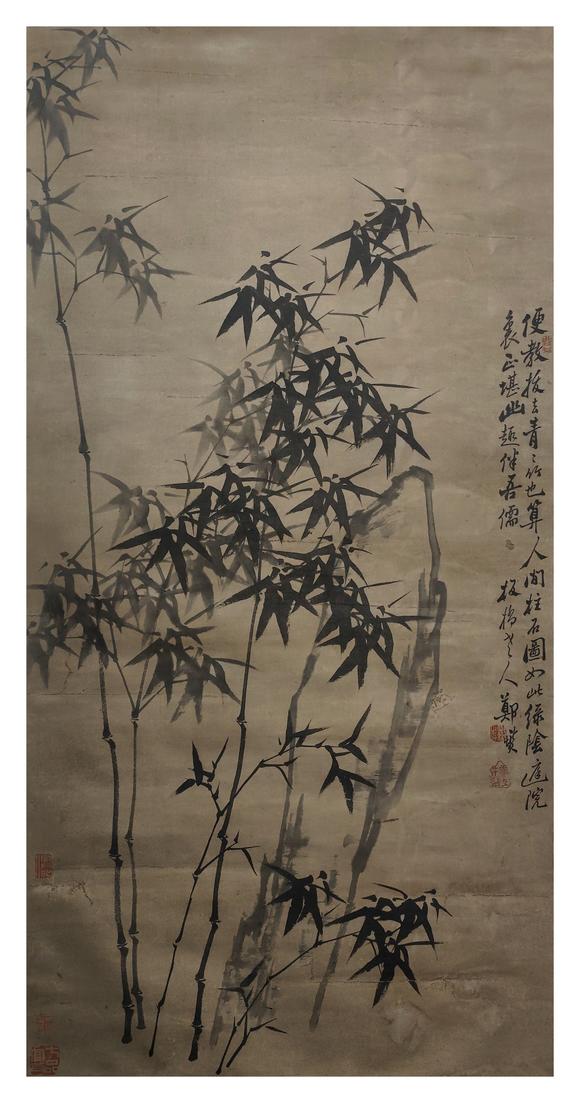 便教拔去青〻竹也算人間柱石圖如此綠陰庭院
裏正堪幽趣伴吾儒
板橋老人鄭燮